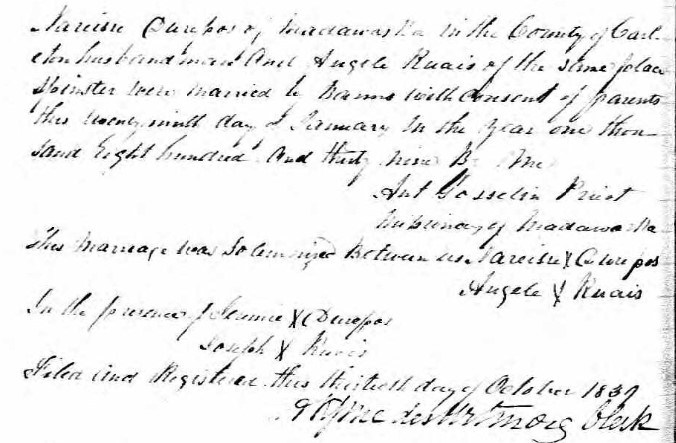 Narcisse Durepos of Madawaska in the County of Carl-
eton husbandman And Angele Kuais of the same place
Spinster were married by Banns with Consent of parents
this twenty ninth day of January In the year one thou-
sand Eight hundred And thirty nine By Me
Ant Gosselin Priest
of Madawaska
This Marriage was Solemnized Between us Narcisse X Durepos
Angele X Kuais
In the presence of X Durepos
Joseph X Kuais
Filed And Registered this thirtieth day of October 1839
Clerk